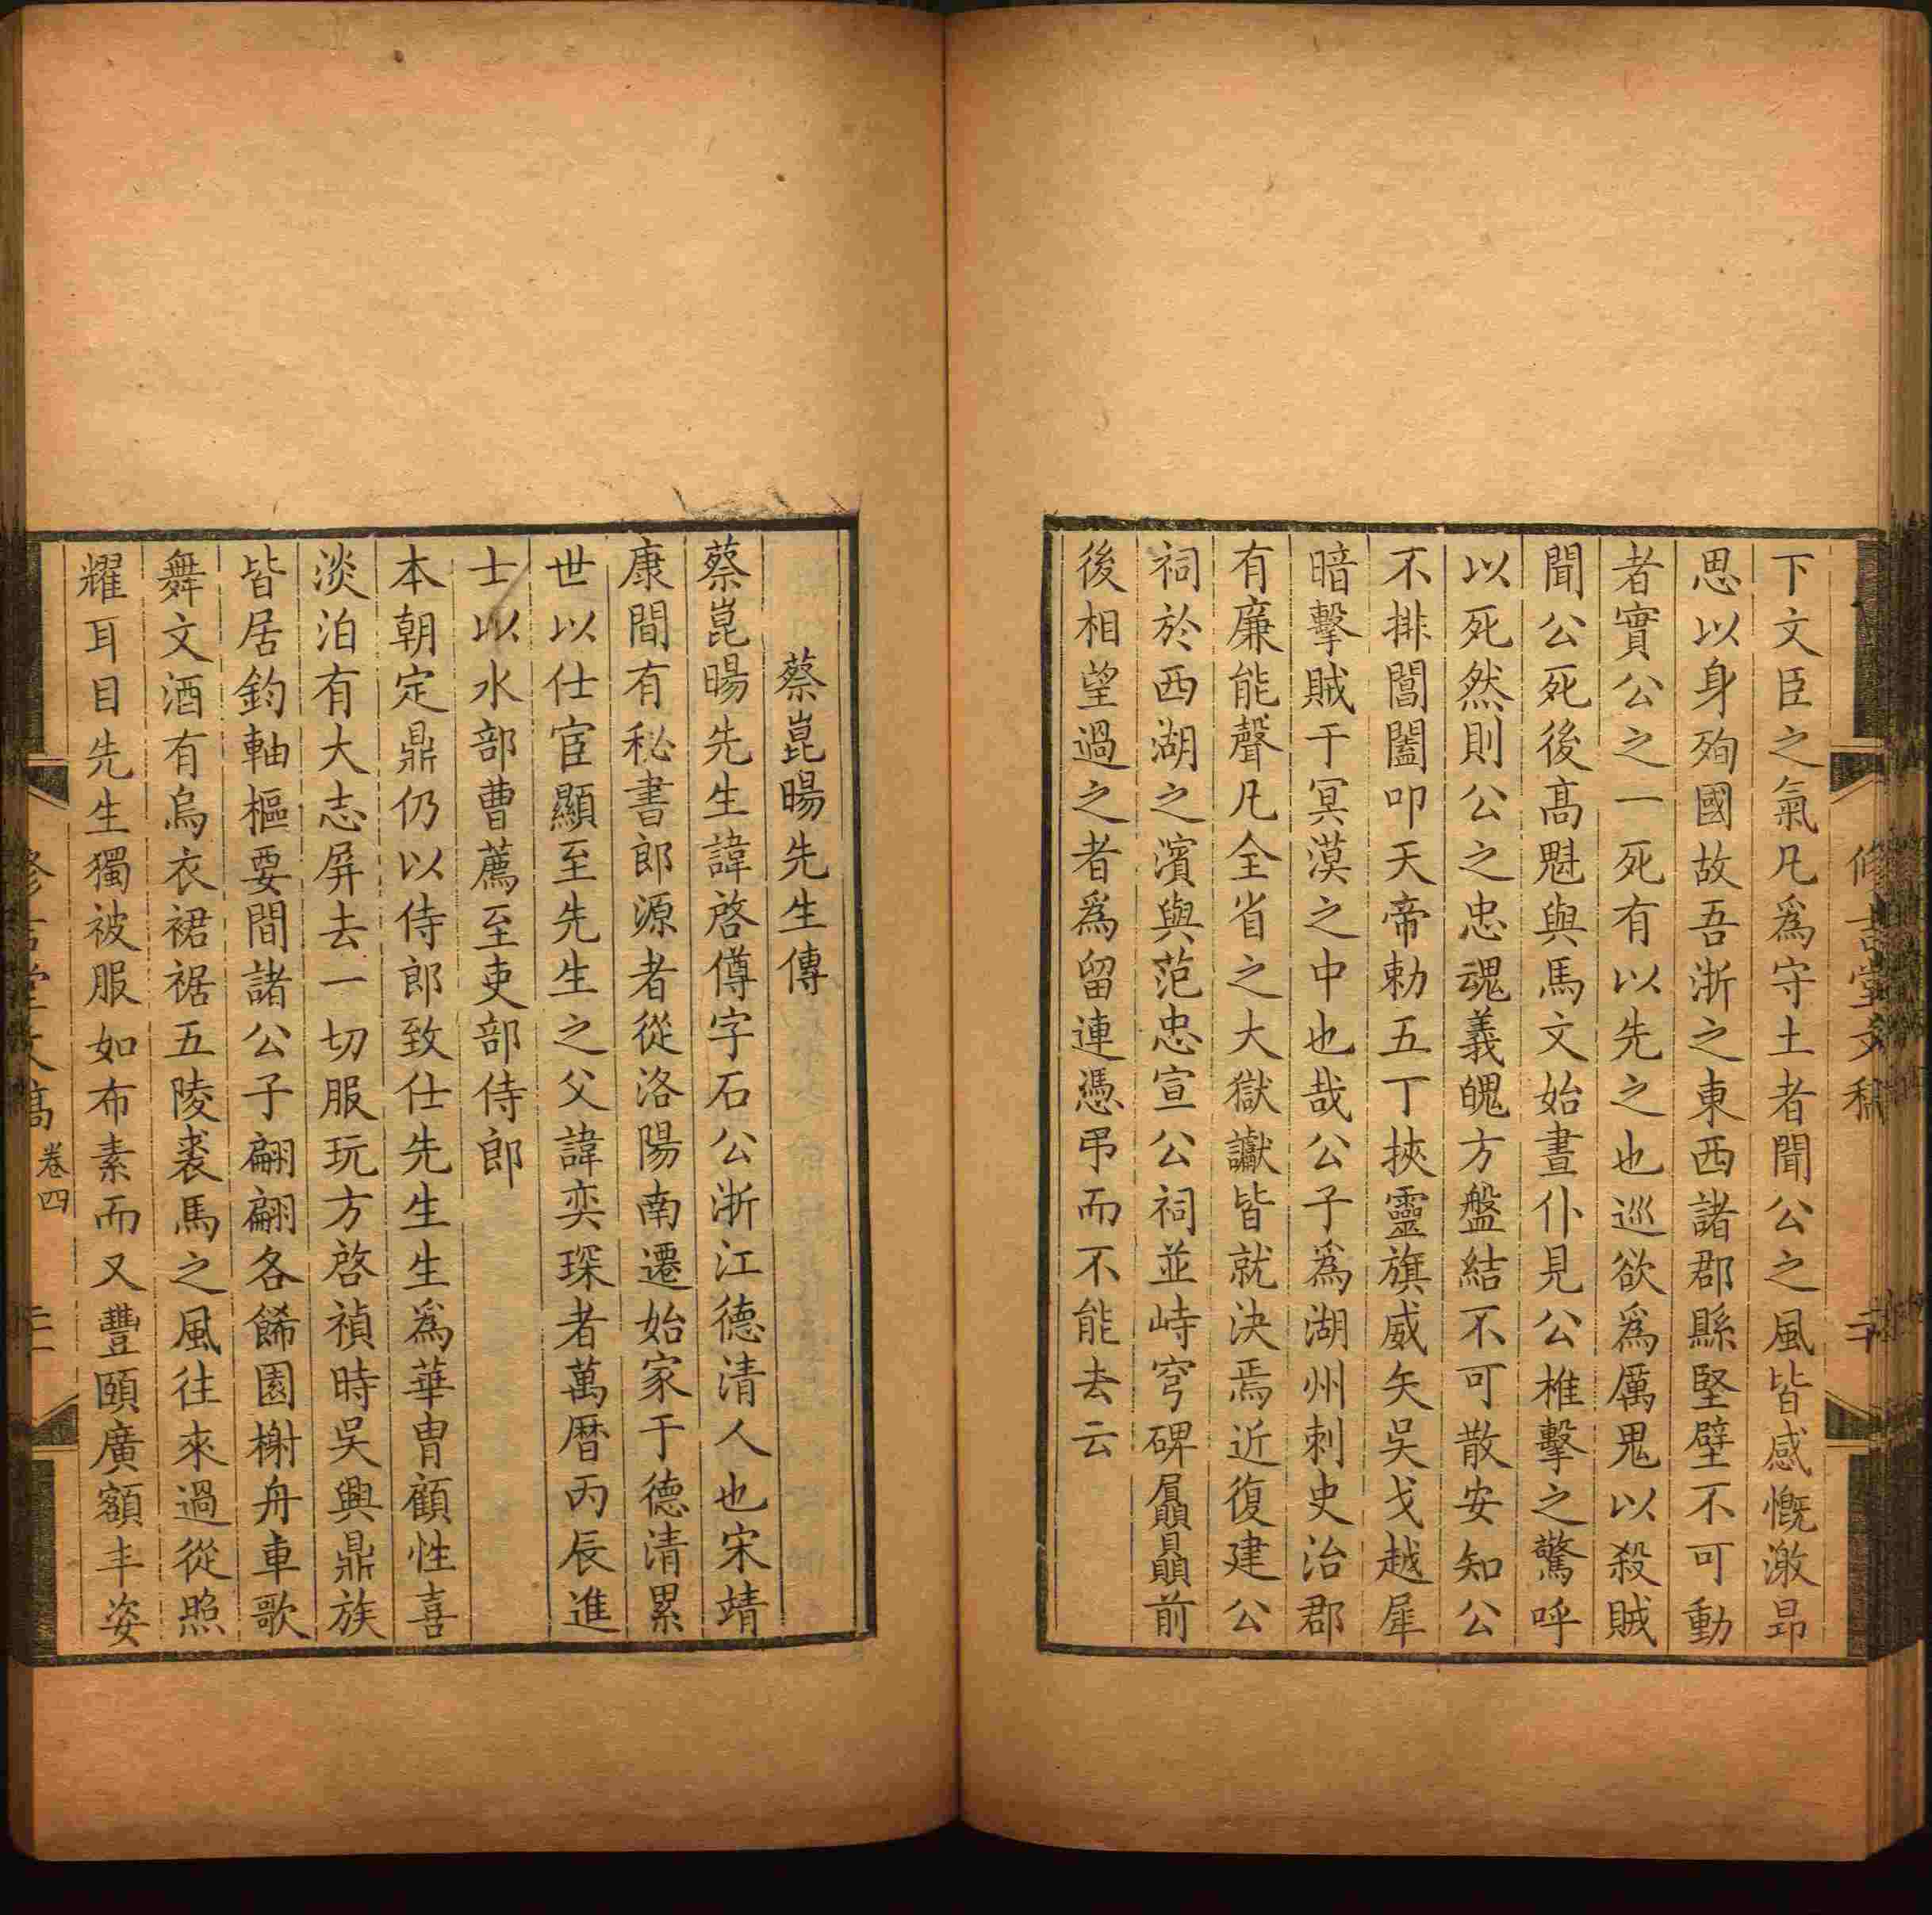 下文臣之氣凡爲守土者聞公之風皆感慨激昂
思以身殉國故吾浙之東西諸郡縣堅壁不可動
者實公之一死有以先之也巡欲爲厲鬼以殺賊
聞公死後高魁與馬文始晝仆見公椎擊之驚呼
以死然則公之忠魂義魄方盤結不可散安知公
不排閶闔叩天帝勅五丁挾靈旗威矢吳戈越犀
暗擊賊于冥漠之中也哉公子爲湖州刺史治郡
有廉能聲凡全省之大獄讞皆就決焉近復建公
祠於西湖之濱與范忠宣公祠並峙穹碑贔贔前
後相望過之者爲留連憑弔而不能去云
蔡崑暘先生傳
蔡崑暘先生諱啓僔字石公浙江德清人也宋靖
康間有秘書郎源者從洛陽南遷始家于德清累
世以仕宦顯至先生之父諱奕琛者萬曆丙辰進
士以水部曹薦至吏部侍郎
本朝定鼎仍以侍郎致仕先生生爲華胄顧性喜
淡泊有大志屏去一切服玩方啓禎時吳興鼎族
皆居鈞軸樞要間諸公子翩翩各餙園榭舟車歌
舞文酒有烏衣裙裾五陵裘馬之風往來過從照
耀耳目先生獨被服如布素而又豐頤廣額丰姿
堂文稿 卷四